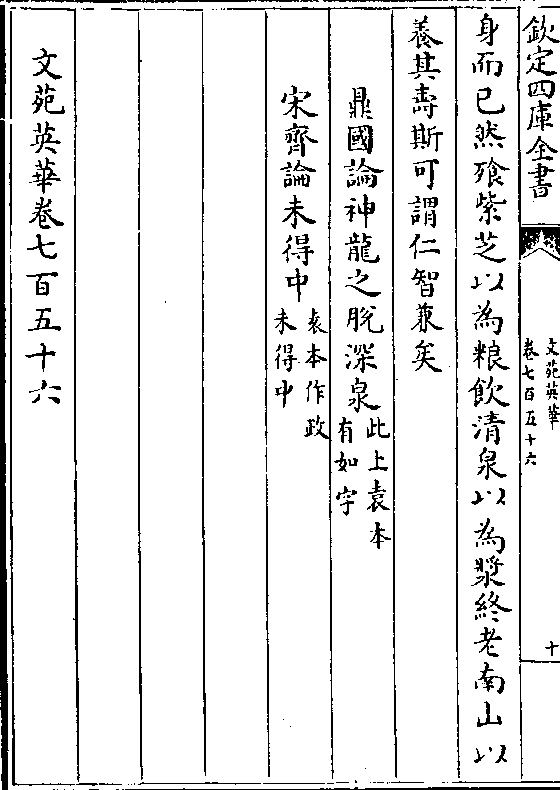 欽定四庫全書
文苑英華
卷七百五十六
十
身而已然飱紫芝以為粮飲清泉以為漿終老南山以
養其壽斯可謂仁智兼矣
鼎國論神龍之脫深泉此上袁本
有如字
宋齊論未得中袁本作政
未得中
文苑英華卷七百五十六